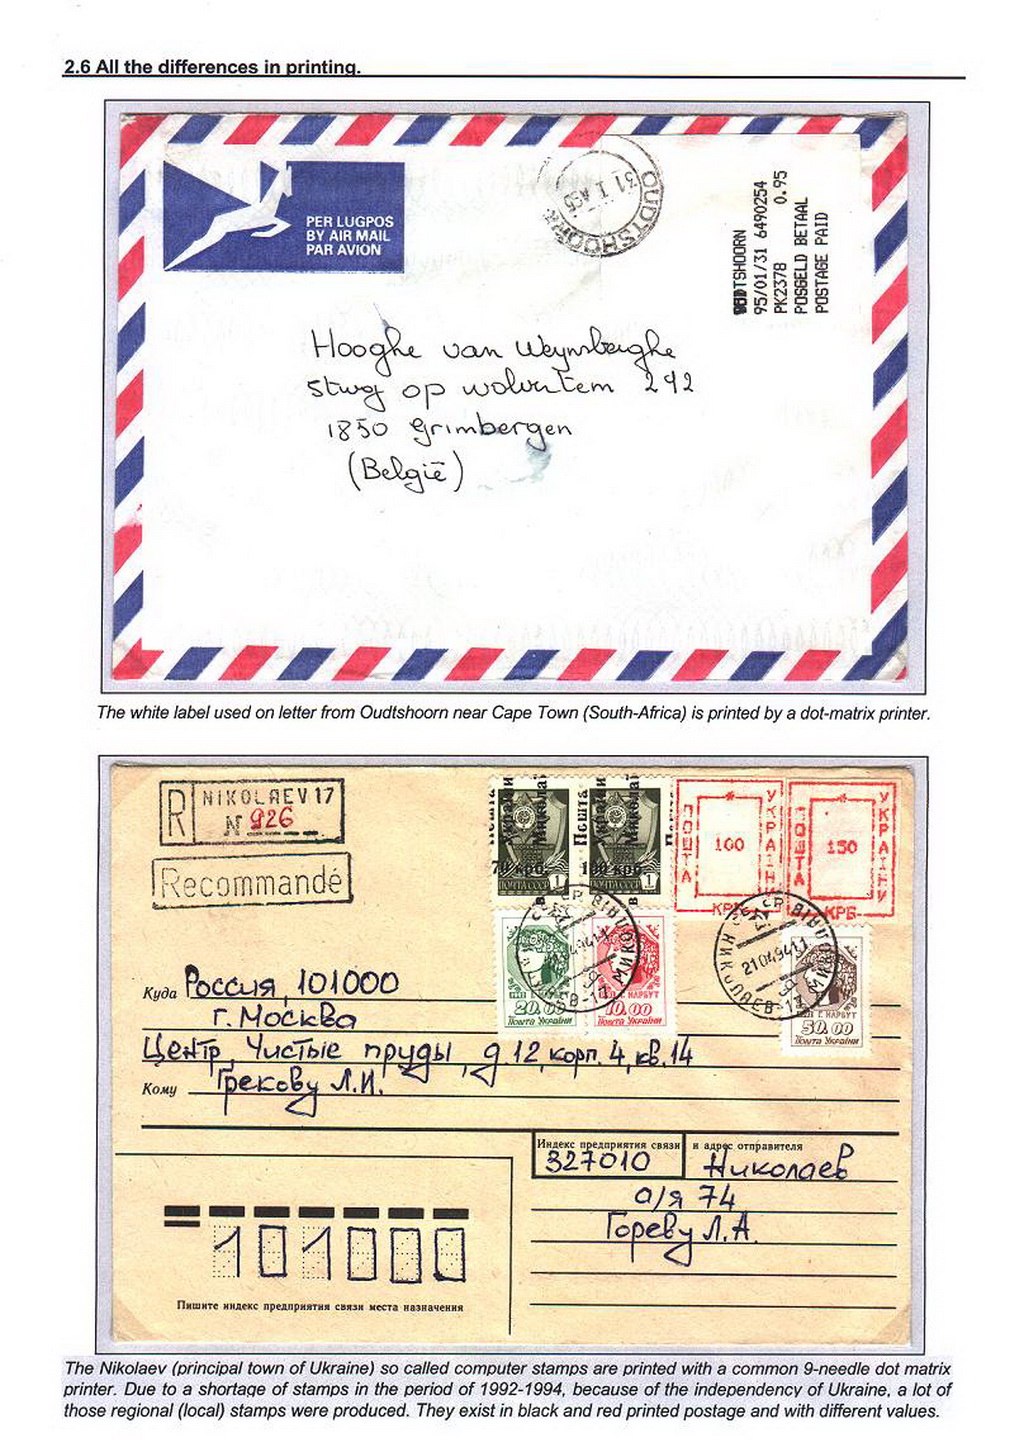 2.6 All the differences in printing.
PER LUGPOS
BY AIR MAIL
PAR AVION
OUDTSHOORN
31 I
OUDTSHOORN
95/01/31 6490254
PK2378 0.95
POSGELD BETAAL
POSTAGE PAID
Hooghe van Weynsberghe
stwg op wolvertem 292
1850 Grimbergen
(België)
The white label used on letter from Oudtshoorn near Cape Town (South-Africa) is printed by a dot-matrix printer.
R NIKOLAEV 17
N 926
Recommandé
Пошта
України
Миколаї
70 крб.
ПОЧТА СССР 1
Пошта
України
Миколаї
100 крб.
ПОЧТА СССР 1
ПОШТА
100
УКРАЇНИ
КРБ
ПОШТА
150
УКРАЇНИ
КРБ
20.00
Пошта України
Г. НАРБУТ
10.00
Пошта України
21049411
НИКОЛАЕВ-17
Г. НАРБУТ
50.00
Пошта України
Куда Россия, 101000
г. Москва
Центр, Чистые пруды, д.12, корп. 4, кв. 14
Кому Грекову Л.И.
Индекс предприятия связи и адрес отправителя
327010 Николаев
а/я 74
Гореву Л.А.
101000
Пишите индекс предприятия связи места назначения
The Nikolaev (principal town of Ukraine) so called computer stamps are printed with a common 9-needle dot matrix
printer. Due to a shortage of stamps in the period of 1992-1994, because of the independency of Ukraine, a lot of
those regional (local) stamps were produced. They exist in black and red printed postage and with different values.